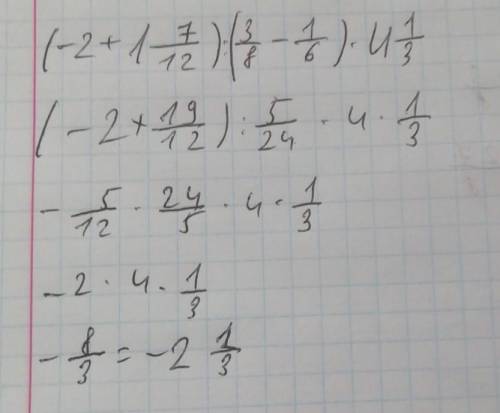 (-2 + 1 7/12) : (3/8 - 1/6) · 4 1/3
(-2 + 19/12) : 5/24 · 4 · 1/3
- 5/12 · 24/5 · 4 · 1/3
-2 · 4 · 1/3
- 8/3 = -2 1/3